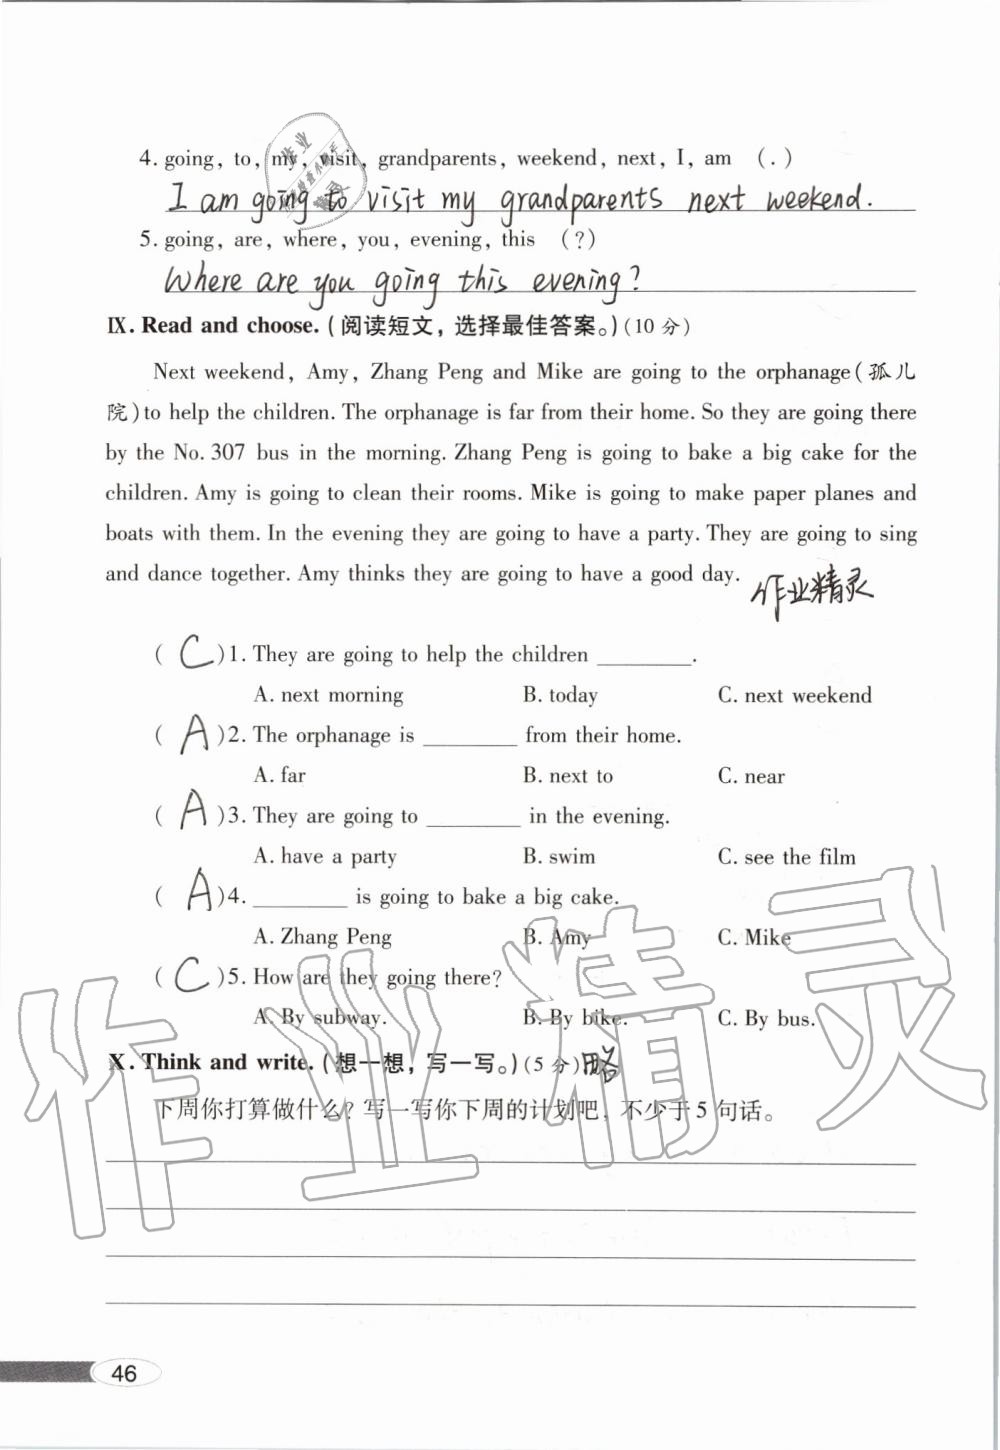 4. going, to, my, visit, grandparents, weekend, next, I, am (.)
I am going to visit my grandparents next weekend.
5. going, are, where, you, evening, this (?)
Where are you going this evening?
Ⅸ. Read and choose. (阅读短文，选择最佳答案。)(10 分)
Next weekend, Amy, Zhang Peng and Mike are going to the orphanage(孤儿
院)to help the children. The orphanage is far from their home. So they are going there
by the No. 307 bus in the morning. Zhang Peng is going to bake a big cake for the
children. Amy is going to clean their rooms. Mike is going to make paper planes and
boats with them. In the evening they are going to have a party. They are going to sing
and dance together. Amy thinks they are going to have a good day.
作业精灵
( C )1. They are going to help the children ________.
A. next morning B. today C. next weekend
( A )2. The orphanage is ________ from their home.
A. far B. next to C. near
( A )3. They are going to ________ in the evening.
A. have a party B. swim C. see the film
( A )4. ________ is going to bake a big cake.
A. Zhang Peng B. Amy C. Mike
( C )5. How are they going there?
A. By subway. B. By bike. C. By bus.
Ⅹ. Think and write. (想一想，写一写。)(5 分)略
下周你打算做什么？写一写你下周的计划吧，不少于 5 句话。
作业精灵
46